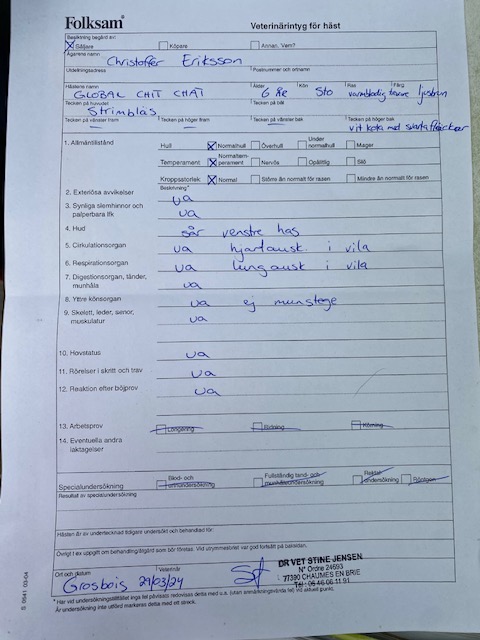 Folksam®
Veterinärintyg för häst
Besiktning begärd av:
Säljare Köpare Annan. Vem?
Ägarens namn
Christoffer Eriksson
Utdelningsadress Postnummer och ortnamn
Hästens namn Ålder Kön Ras Färg
GLOBAL CHIT CHAT 6 åe Sto varmblodig travare ljusbrun
Tecken på huvudet Tecken på bål
Strimbläs
Tecken på vänster fram Tecken på höger fram Tecken på vänster bak Tecken på höger bak
vit kota med svarta fläckar
1. Allmäntillstånd Hull Normalhull Överhull Under normalhull Mager
Temperament Normaltemperament Nervös Opålitlig Slö
Kroppsstorlek Normal Större än normalt för rasen Mindre än normalt för rasen
Beskrivning*
2. Exteriöra avvikelser ua
3. Synliga slemhinnor och palperbara lfk ua
4. Hud sår venstre has
5. Cirkulationsorgan ua hjärtausk. i vila
6. Respirationsorgan ua lungausk i vila
7. Digestionsorgan, tänder, munhåla ua
8. Yttre könsorgan ua ej munstege
9. Skelett, leder, senor, muskulatur ua
10. Hovstatus ua
11. Rörelser i skritt och trav ua
12. Reaktion efter böjprov ua
13. Arbetsprov Longering Ridning Körning
14. Eventuella andra iakttagelser
Specialundersökning Blod- och urinundersökning Fullständig tand- och munhåleundersökning Rektalundersökning Röntgen
Resultat av specialundersökning
Hästen är av undertecknad tidigare undersökt och behandlad för:
Övrigt t ex uppgift om behandling/åtgärd som bör företas. Vid utrymmesbrist var god fortsätt på baksidan.
Ort och datum Veterinär
Grosbois 29/03/24
DR VET STINE JENSEN
N° Ordre 24693
77390 CHAUMES EN BRIE
Tél.: 06 46 06 11 91
*Har vid undersökningstillfället inga fel påvisats redovisas detta med u.a. (utan anmärkningsvärda fel) vid aktuell punkt.
Är undersökning inte utförd markeras detta med ett streck.
S 0541 03-04